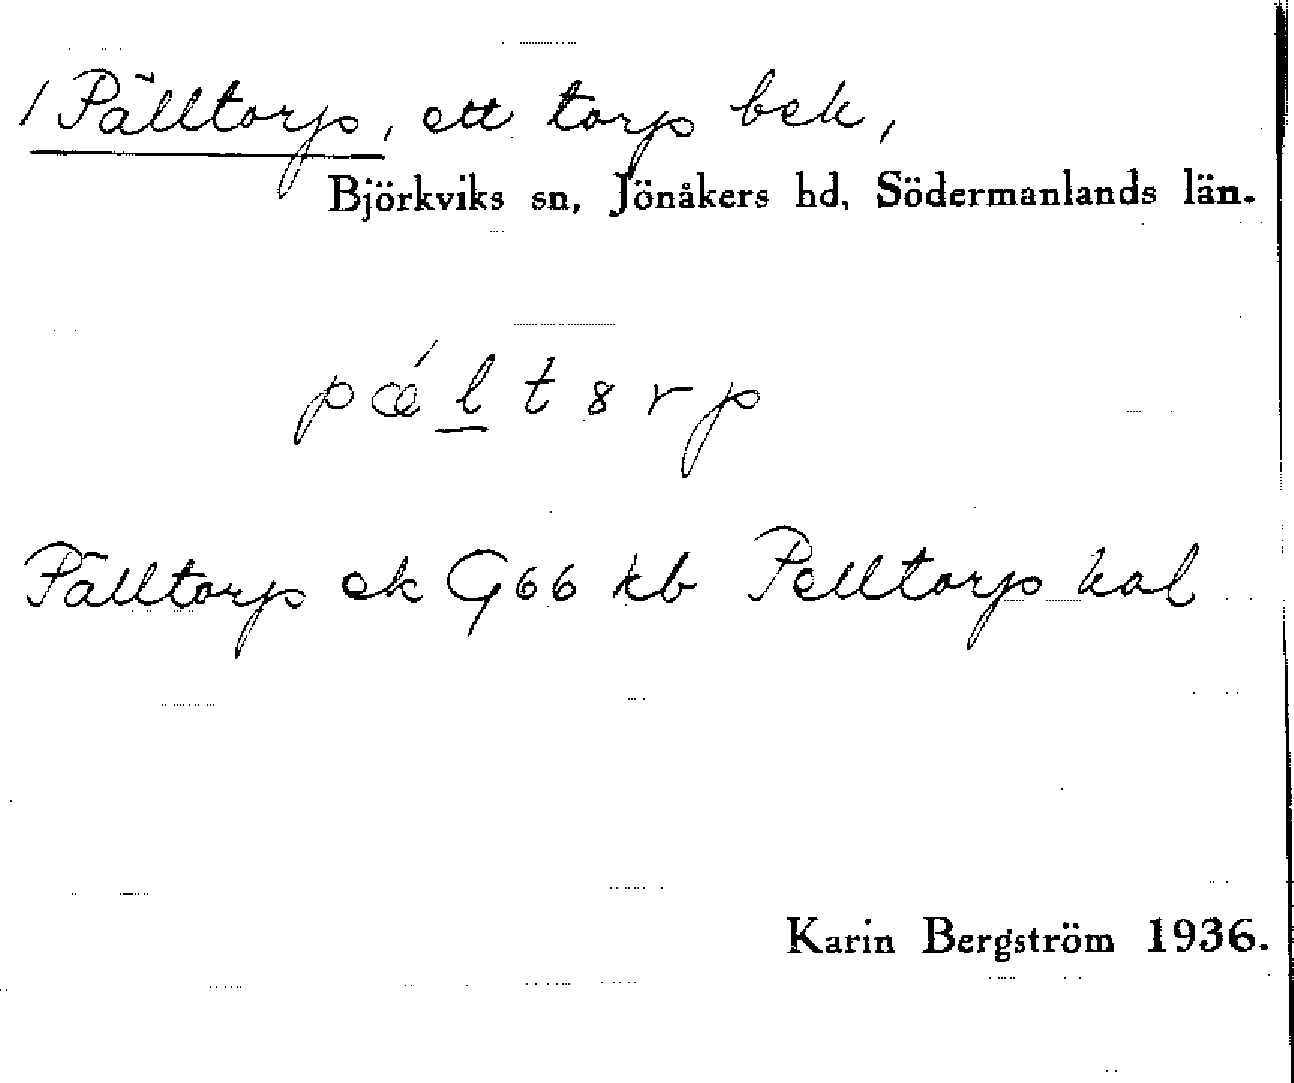 / Pälltorp, ett torp bek,
Björkviks sn, Jönåkers hd, Södermanlands län.
pǽltȣrp
Pälltorp ek G66 kb Pelltorp hal
Karin Bergström 1936.